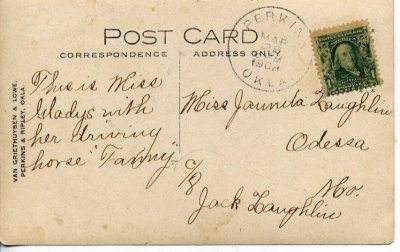 POST CARD
CORRESPONDENCE
ADDRESS ONLY
PERKINS
MAR
190
OKLA
VAN GRIETHUYSEN & LOWE,
PERKINS & RIPLEY, OKLA.
This is Miss
Gladys with
her driving
horse "Tawny"
Miss Jaunita Laughlin
Odessa
Mo.
c/o
Jack Laughlin